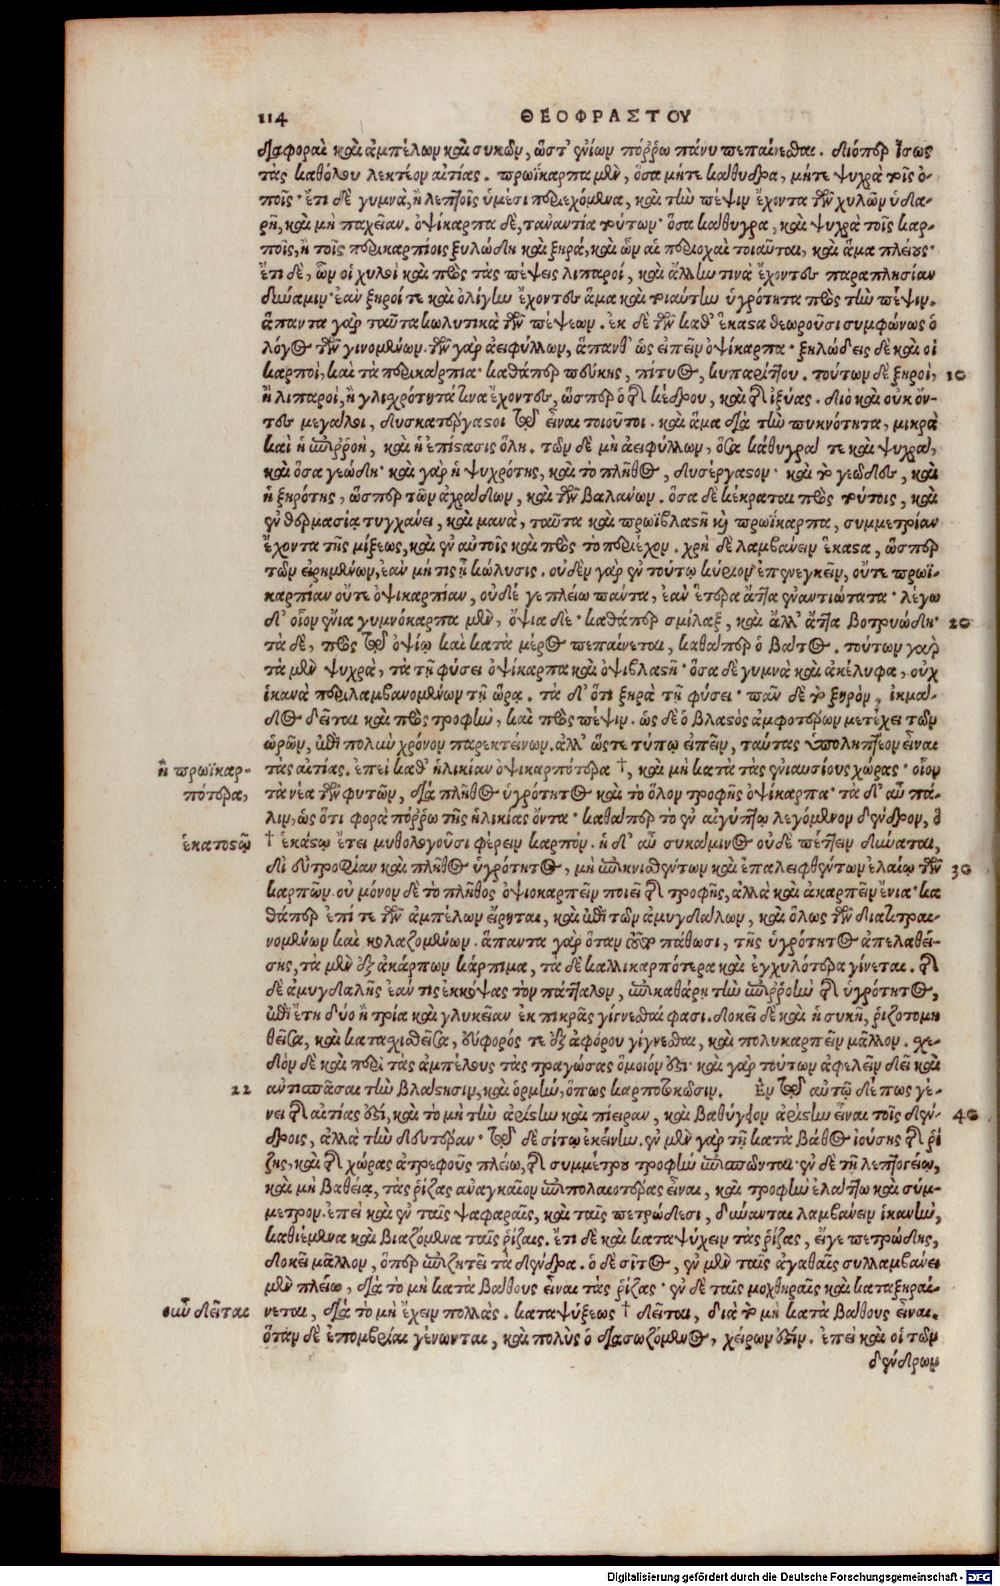 114 ΘΕΟΦΡΑΣΤΟΥ
διαφοραὶ καὶ ἀμπέλων καὶ συκῶν, ὥστ' ἐνίων πόρρω πάνυ πεπαίνεσθαι. διόπερ ἴσως
τὰς καθόλου λεκτέον αἰτίας. πρωΐκαρπα μὲν, ὅσα μήτε κάθυδρα, μήτε ψυχρὰ τοῖς ὀ-
ποῖς· ἔτι δὲ γυμνὰ, ἢ λεπτοῖς ὑμέσι περιεχόμενα, καὶ τὴν πέψιν ἔχοντα τῶν χυλῶν ὑδα-
ρῆ, καὶ μὴ παχεῖαν. ὀψίκαρπα δὲ, τἀναντία τούτων· ὅσα κάθυγρα, καὶ ψυχρὰ τοῖς καρ-
ποῖς, ἢ τοῖς περικαρπίοις ξυλώδη καὶ ξηρά, καὶ ὧν αἱ περιοχαὶ τοιαῦται, καὶ ἅμα πλείους·
ἔτι δὲ, ὧν οἱ χυλοὶ καὶ πρὸς τὰς πέψεις λιπαροί, καὶ ἄλλην τινὰ ἔχοντες παραπλησίαν
δύναμιν· ἐὰν ξηροί τε καὶ ὀλίγην ἔχοντες ἅμα καὶ τοιαύτην ὑγρότητα πρὸς τὴν πέψιν.
ἅπαντα γὰρ ταῦτα κωλυτικὰ τῶν πέψεων. ἐκ δὲ τῶν καθ' ἕκαστα θεωροῦσι συμφώνως ὁ
λόγος τῶν γινομένων. τῶν γὰρ ἀειφύλλων, ἅπανθ' ὡς εἰπεῖν ὀψίκαρπα· ξηλώδεις δὲ καὶ οἱ
καρποὶ, καὶ τὰ περικάρπια· καθάπερ πεύκης, πίτυος, κυπαρίττου. τούτων δὲ ξηροὶ, 10
ἢ λιπαροὶ, ἢ γλισχρότητά τινα ἔχοντες, ὥσπερ ὁ τῆς κέδρου, καὶ τῆς ἰξύας. διὸ καὶ οὐκ ὄν-
τες μεγάλοι, δυσκατέργαστοι τῷ εἶναι τοιοῦτοι. καὶ ἅμα διὰ τὴν πυκνότητα, μικρὰ
καὶ ἡ ἐπιρροὴ, καὶ ἡ ἐπίστασις ὅλη. τῶν δὲ μὴ ἀειφύλλων, ὅσα κάθυγρά τε καὶ ψυχρά,
καὶ ὅσα γεώδη· καὶ γὰρ ἡ ψυχρότης, καὶ τὸ πλῆθος, δυσέργαστον· καὶ τὸ γεῶδες, καὶ
ἡ ξηρότης, ὥσπερ τῶν ἀχράδων, καὶ τῶν βαλάνων. ὅσα δὲ κέκραται πρὸς τούτοις, καὶ
ἐν θερμασίᾳ τυγχάνει, καὶ μανὰ, ταῦτα καὶ πρωϊβλαστῆ καὶ πρωΐκαρπα, συμμετρίαν
ἔχοντα τῆς μίξεως, καὶ ἐν αὐτοῖς καὶ πρὸς τὸ περιέχον. χρὴ δὲ λαμβάνειν ἕκαστα, ὥσπερ
τῶν εἰρημένων, ἐὰν μή τις ᾖ κώλυσις. οὐδὲν γὰρ ἐν τούτῳ κύριον ἐπενεγκεῖν, οὔτε πρωϊ-
καρπίαν οὔτε ὀψικαρπίαν, οὐδέ γε πλείω πάντα, ἐὰν ἕτερα ἄττα ἐναντιώτατα· λέγω
δ' οἷον ἔνια γυμνόκαρπα μὲν, ὄψια δέ· καθάπερ σμίλαξ, καὶ ἄλλ' ἄττα βοτρυώδη· 20
τὰ δὲ, πρὸς τῷ ὀψίῳ καὶ κατὰ μέρος πεπαίνεται, καθάπερ ὁ βάτος. τούτων γὰρ
τὰ μὲν ψυχρὰ, τὰ τῇ φύσει ὀψίκαρπα καὶ ὀψιβλαστῆ· ὅσα δὲ γυμνὰ καὶ ἀκέλυφα, οὐχ
ἱκανὰ περιλαμβανομένων τῇ ὥρᾳ. τὰ δ' ὅτι ξηρὰ τῇ φύσει· πᾶν δὲ τὸ ξηρὸν, ἰκμά-
δος δεῖται καὶ πρὸς τροφὴν, καὶ πρὸς πέψιν. ὡς δὲ ὁ βλαστὸς ἀμφοτέρων μετέχει τῶν
ὡρῶν, ἐπὶ πολὺν χρόνον παρεκτείνων. ἀλλ' ὥστε τύπῳ εἰπεῖν, ταύτας ὑποληπτέον εἶναι
ἢ πρωϊκαρ- τὰς αἰτίας. ἐπεὶ καθ' ἡλικίαν ὀψικαρπότερα †, καὶ μὴ κατὰ τὰς ἐνιαυσίους χώρας· οἷον
πότερα, τὰ νέα τῶν φυτῶν, διὰ πλῆθος ὑγρότητος καὶ τὸ ὅλον τροφῆς ὀψίκαρπα· τὰ δ' αὖ πά-
λιν, ὡς ὅτι φορὰ πόρρω τῆς ἡλικίας ὄντα· καθάπερ τὸ ἐν αἰγύπτῳ λεγόμενον δένδρον, ὃ
ἑκατοστῷ † ἑκάστῳ ἔτει μυθολογοῦσι φέρειν καρπόν. ἡ δ' αὖ συκάμινος οὐδὲ πέττειν δύναται,
δι' εὐτροφίαν καὶ πλῆθος ὑγρότητος, μὴ ἐπικνισθέντων καὶ ἐπαλειφθέντων ἐλαίῳ τῶν 30
καρπῶν. οὐ μόνον δὲ τὸ πλῆθος ὀψιοκαρπεῖν ποιεῖ τῆς τροφῆς, ἀλλὰ καὶ ἀκαρπεῖν ἔνια· κα
θάπερ ἐπί τε τῶν ἀμπέλων εἴρηται, καὶ ἐπὶ τῶν ἀμυγδάλων, καὶ ὅλως τῶν διατετραι-
νομένων καὶ κολαζομένων. ἅπαντα γὰρ ὅταν τοῦτο πάθωσι, τῆς ὑγρότητος ἀπελαθεί-
σης, τὰ μὲν ἐξ ἀκάρπων κάρπιμα, τὰ δὲ καλλικαρπότερα καὶ ἐγχυλότερα γίνεται. τῆς
δὲ ἀμυγδαλῆς ἐάν τις ἐκκόψας τὸν πάτταλον, ἐπικαθάρῃ τὴν ἐπιρροὴν τῆς ὑγρότητος,
ἐπὶ ἔτη δύο ἢ τρία καὶ γλυκεῖαν ἐκ πικρᾶς γίγνεσθαί φασι. δοκεῖ δὲ καὶ ἡ συκῆ, ῥιζοτομη
θεῖσα, καὶ κατασχισθεῖσα, εὔφορός τε ἐξ ἀφόρου γίγνεσθαι, καὶ πολυκαρπεῖν μᾶλλον. σχε-
δὸν δὲ καὶ περὶ τὰς ἀμπέλους τὰς τραγώσας ὅμοιόν ἐστι· καὶ γὰρ τούτων ἀφελεῖν δεῖ καὶ
22 ἀντισπᾶσαι τὴν βλάστησιν, καὶ ὁρμὴν, ὅπως καρποτοκῶσιν. Ἐν τῷ αὐτῷ δέ πως γέ-
νει τῆς αἰτίας ἐστὶ, καὶ τὸ μὴ τὴν ἀρίστην καὶ πίειραν, καὶ βαθύγειον ἀρίστην εἶναι τοῖς δέν- 40
δροις, ἀλλὰ τὴν δευτέραν· τῷ δὲ σίτῳ ἐκείνην. ἐν μὲν γὰρ τῇ κατὰ βάθος ἰούσης τῆς ῥί
ζης, καὶ τῆς χώρας ἀτρεφοῦς πλείω, τῆς συμμέτρου τροφὴν ἐπισπῶνται· ἐν δὲ τῇ λεπτογείῳ,
καὶ μὴ βαθείᾳ, τὰς ῥίζας ἀναγκαῖον ἐπιπολαιοτέρας εἶναι, καὶ τροφὴν ἐλάττω καὶ σύμ-
μετρον. ἐπεὶ καὶ ἐν ταῖς ψαφαραῖς, καὶ ταῖς πετρώδεσι, δύνανται λαμβάνειν ἱκανὴν,
καθιέμενα καὶ βιαζόμενα ταῖς ῥίζαις. ἔτι δὲ καὶ καταψύχειν τὰς ῥίζας, εἴγε πετρώδης,
δοκεῖ μᾶλλον, ὅπερ ἐπιζητεῖ τὰ δένδρα. ὁ δὲ σῖτος, ἐν μὲν ταῖς ἀγαθαῖς συλλαμβάνει
μὲν πλείω, διὰ τὸ μὴ κατὰ βάθους εἶναι τὰς ῥίζας· ἐν δὲ ταῖς μοχθηραῖς καὶ καταξηραί-
οὐ δεῖται νεται, διὰ τὸ μὴ ἔχειν πολλάς. καταψύξεως † δεῖται, διὰ τὸ μὴ κατὰ βάθους εἶναι.
ὅταν δὲ ἐπομβρίαι γένωνται, καὶ πολὺς ὁ διασωζόμενος, χείρων ἐστίν. ἐπεὶ καὶ οἱ τῶν
δένδρων
Digitalisierung gefördert durch die Deutsche Forschungsgemeinschaft - DFG